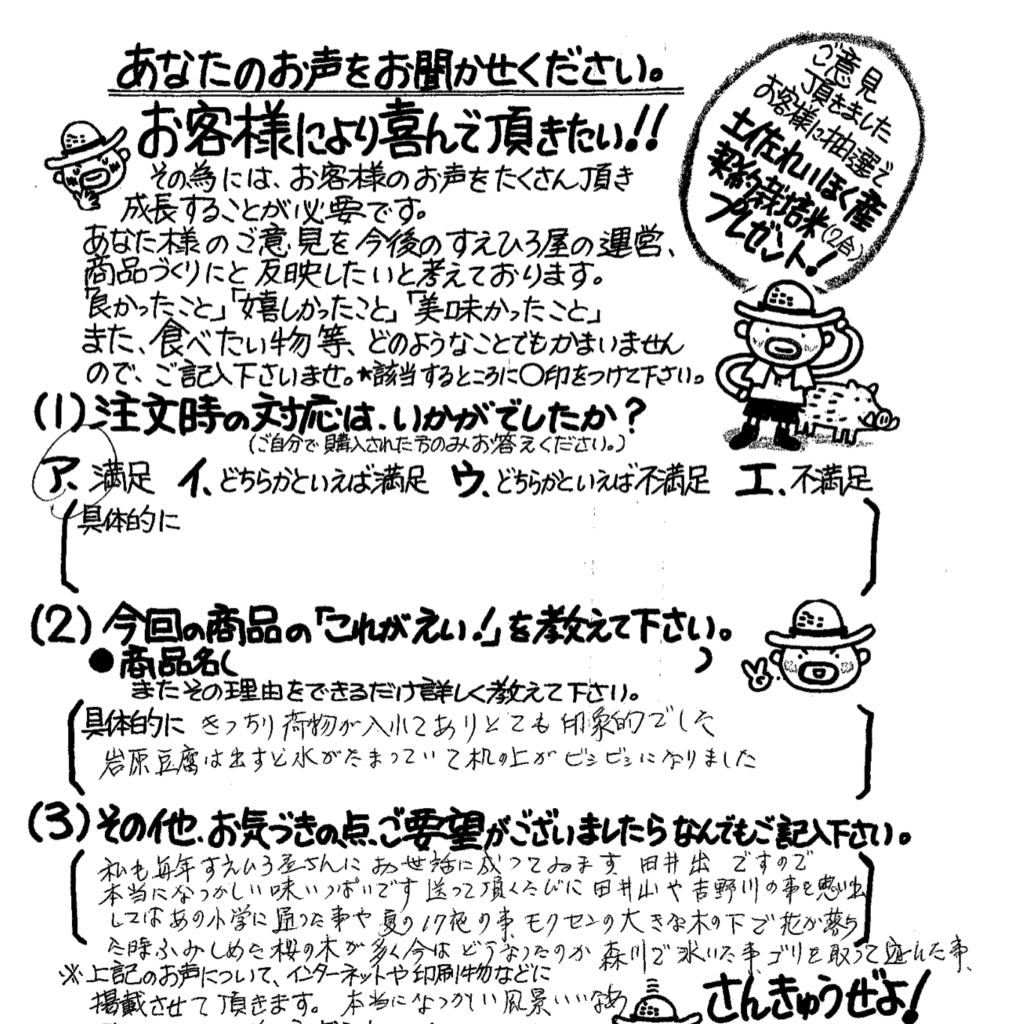 あなたのお声をお聞かせください。
お客様により喜んで頂きたい!!
その為には、お客様のお声をたくさん頂き
成長することが必要です。
あなた様のご意見を今後のすえひろ屋の運営、
商品づくりにと反映したいと考えております。
「良かったこと」「嬉しかったこと」「美味かったこと」
また、食べたい物等、どのようなことでもかまいません
ので、ご記入下さいませ。*該当するところに〇印をつけて下さい。
ご意見
頂きました
お客様に抽選で
土佐れいほく産
契約栽培米(2合)
プレゼント!
(1)注文時の対応は、いかがでしたか?
(ご自分で購入された方のみお答えください。)
ア、満足 イ、どちらかといえば満足 ウ、どちらかといえば不満足 エ、不満足
具体的に
(2)今回の商品の「これがえい!」を教えて下さい。
●商品名( )
またその理由をできるだけ詳しく教えて下さい。
具体的に きっちり荷物が入れてありとても印象的でした
岩原豆腐は出すと水がたまっていて机の上がビシビシになりました
(3)その他、お気づきの点、ご要望がございましたらなんでもご記入下さい。
私も毎年すえひろ屋さんにお世話に成ってゐます 田井出 ですので
本当になつかしい味いっぱいです 送って頂くたびに 田井山や吉野川の事を思い出
してはあの小学に通った事や 夏の17夜の事、モクセンの大きな木の下で花が落ち
た時ふみしめた桜の木が多く今は どうなったのか 森川で泳いた事、ゴリを取って遊んだ事、
※上記のお声について、インターネットや印刷物などに
掲載させて頂きます。 本当になつかしい風景いいなあ
さんきゅうぜよ!